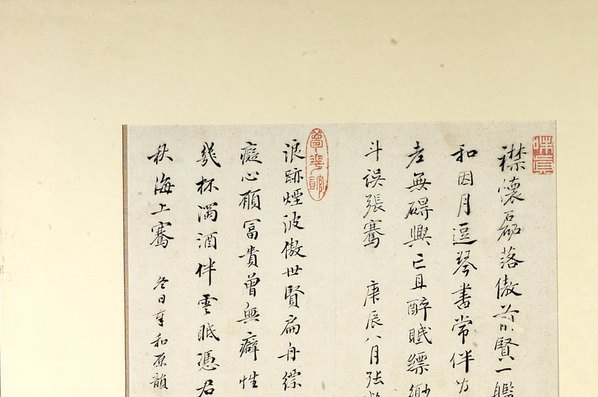 襟懷磊落傲前賢一
和因月逗琴書常伴
老無碍興亡且醉眠縹緲
斗誤張騫 庚辰八月張
浪跡煙波傲世賢扁舟
癡心願富貴曾無癖性
幾杯濁酒伴雲眠憑君
秋海上騫 冬日有和原韻